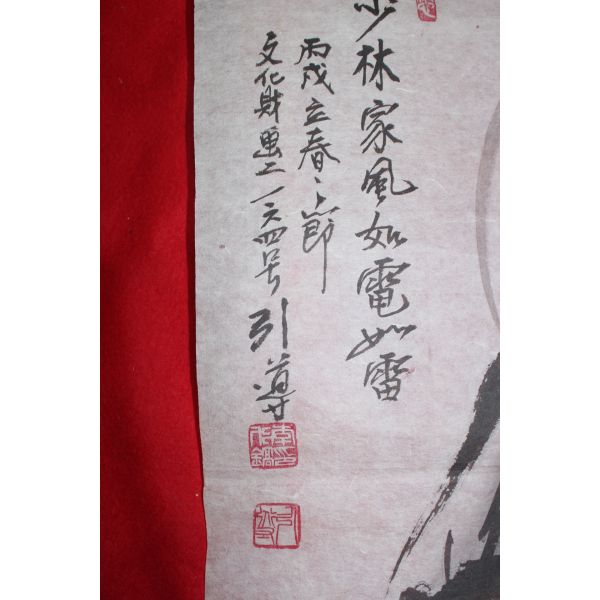 少林家風如電如雷
丙戌立春之節
文化財畫二一六四号 引導